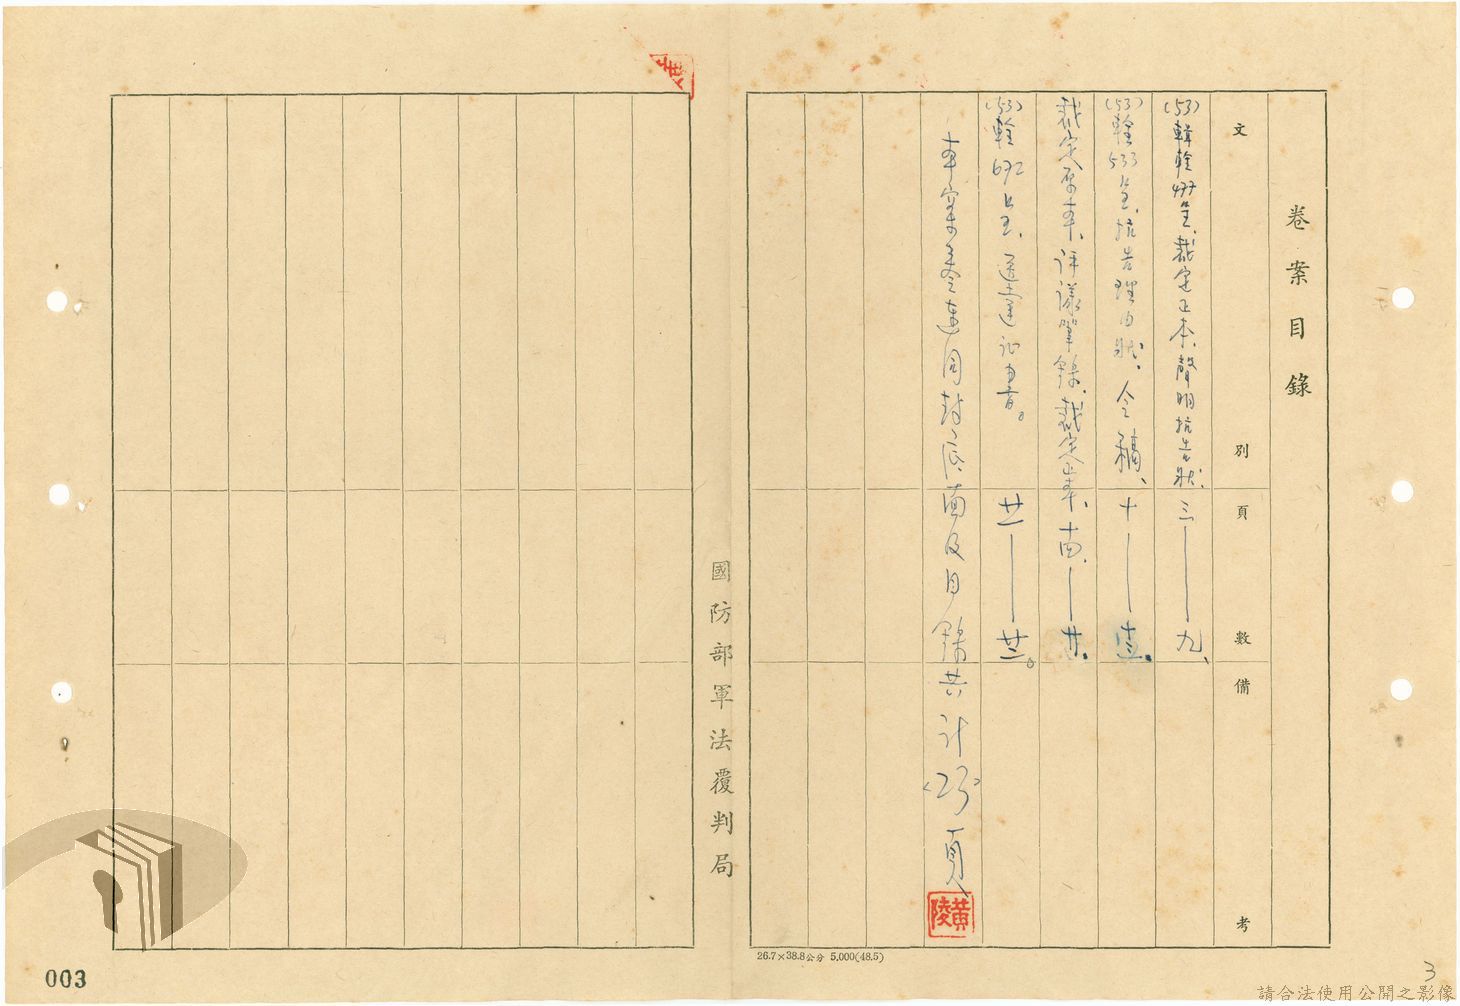 卷案目錄
文別 頁數 備考
(53)輯輇477呈、裁定正本、聲明抗告狀、三——九、
(53)輇533呈、抗告理由狀、令稿、十——十三、
裁定原本、評議筆錄、裁定正本、十四、——廿、
(53)輇692呈、送達證書。廿一——廿三。
本案卷連同封底面及目錄共計(25)頁
黃陵
國防部軍法覆判局
26.7×38.8公分 5,000(48.5)
003
3
請合法使用公開之影像